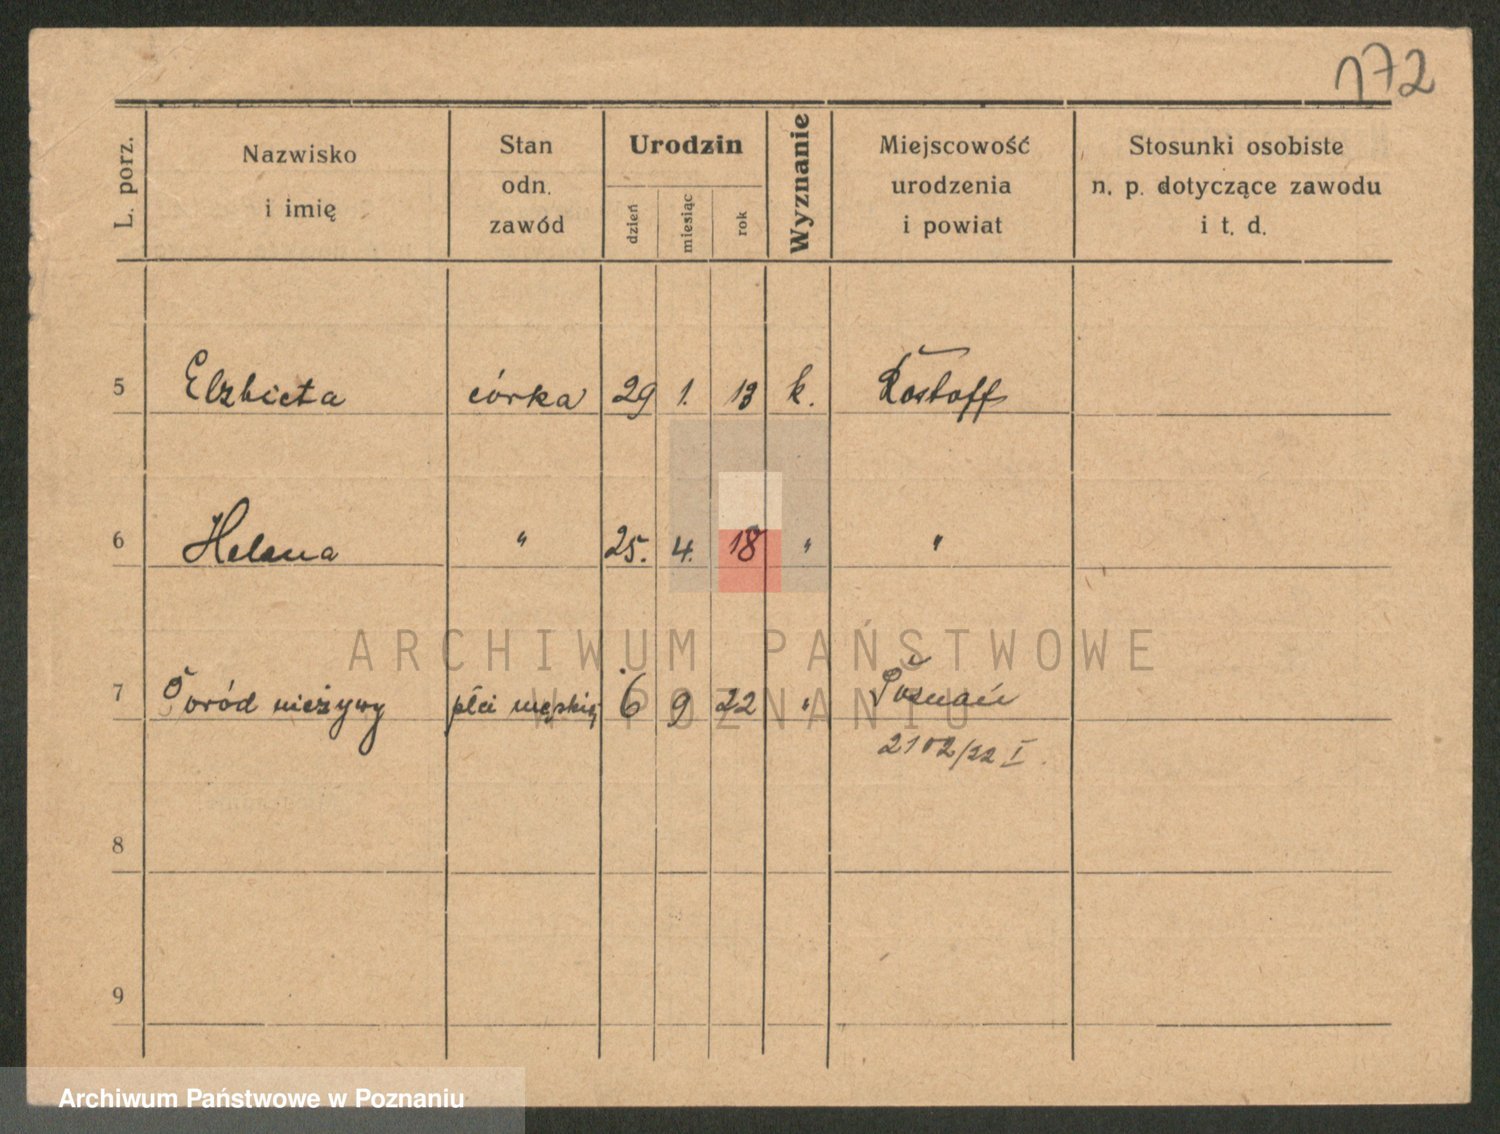 172
L. porz.
Nazwisko
i imię
Stan
odn.
zawód
Urodzin
dzień
miesiąc
rok
Wyznanie
Miejscowość
urodzenia
i powiat
Stosunki osobiste
n. p. dotyczące zawodu
i t. d.
5 Elzbieta córka 29 1. 13 k. Rostoff
6 Helena " 25. 4. 18 " "
7 Poród nieżywy płci męskiej 6 9 22 " Poznań
2102/22 I.
8
9
ARCHIWUM PAŃSTWOWE
W POZNANIU
Archiwum Państwowe w Poznaniu